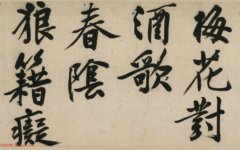 梅花對
酒歌
春陰
狼籍癡